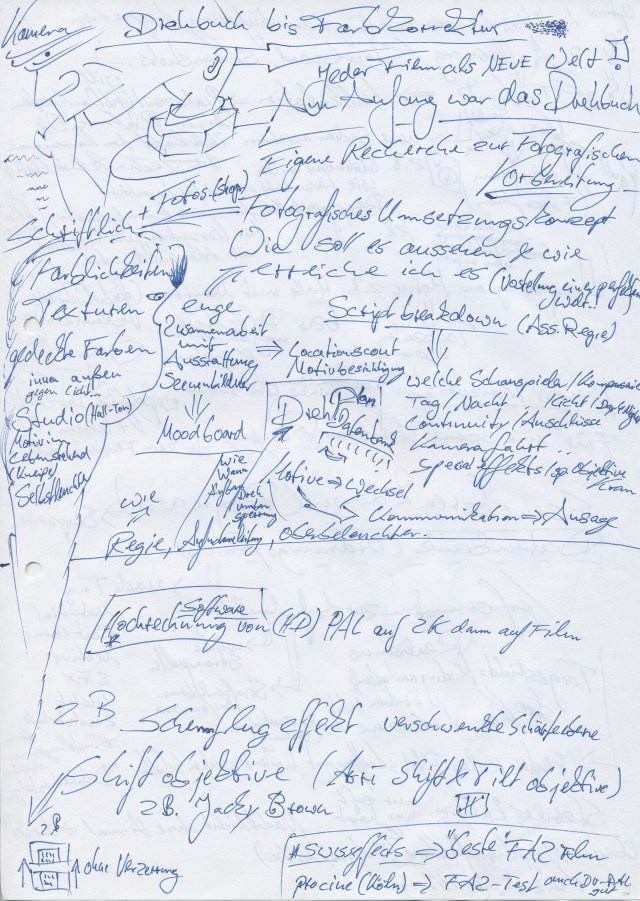 Kamera
Drehbuch bis Farbkorrektur
Jeder Film als NEUE Welt!
Am Anfang war das Drehbuch
Eigene Recherche zur Fotografischen
Vorbereitung
Schriftlich + Fotos (Shops)
Fotografisches Umsetzungskonzept
Wie soll es aussehen & wie
erreiche ich es (Vorstellung einer perfekten
Welt..)
Farblichkeiten
Texturen
gedeckte Farben
innen außen
gegen Licht...
Studio (Hall-Ton)
Motiv im
Lebensstehend
(Kneipe)
Selbstleuchter
enge
Zusammenarbeit
mit
Ausstattung
Szenenbildner
Moodboard
⇒ Locationscout
Motivbesichtigung
Scriptbreakdown (Ass. Regie)
welche Schauspieler/Komparserie
Tag/Nacht /Licht/
Continuity/Anschlüsse
Kamerafahrt..
Special effects/sp. Objektive
/Kran
Dreh Plan
Datenbank
Motive ⇒ Wechsel
Kommunikation ⇒ Aussage
wie
wann
Aufbau
Dreh
sperrung
wie
Regie, Aufnahmeleitung, Oberbeleuchter.
Software
Hochrechnung von (HD) PAL auf 2K dann auf Film
#
z.B. Scheimflug effekt verschwenkte Schärfeebene
Shift objektive (Arri Shift & Tilt objektive)
z.B. Jacky Brown
"H"
z.B
ohne Verzerrung
# swisseffects ⇒ "beste" FAZ Film
procine (Köln) ⇒ FAZ-Test auch DV-PAL
gut